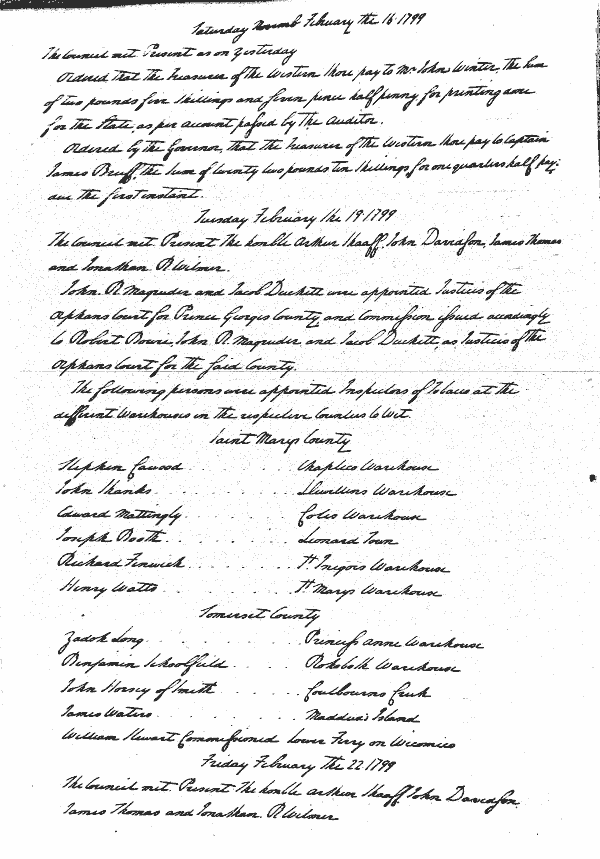 Saturday February the 16 1799
The Council met Present as on yesterday
Ordered that the Treasurer of the Western Shore pay to Mr John Winter, the Sum
of two pounds five Shillings and seven pence half penny for printing done
for the State, as per account passed by the Auditor.
Ordered by the Governor, that the Treasurer of the Western Shore pay to Captain
James Bruff, the Sum of twenty two pounds ten Shillings, for one quarters half pay
due the first instant.
Tuesday February the 19 1799
The Council met. Present The honble Arthur Shaaff, John Davidson, James Thomas
and Jonathan R Wilmer.
John. R Magruder and Jacob Duckett were appointed Justices of the
Orphans Court for Prince Georges County, and Commission issued accordingly
to Robert Bowie, John R. Magruder, and Jacob Duckett, as Justices of the
Orphans Court for the said County.
The following persons were appointed Inspectors of Tobacco at the
different Warehouses in the respective Counties to Wit.
Saint Marys County
Stephen Cawood Chaptico Warehouse
John Shanks Llewellins Warehouse
Edward Mattingly Coles Warehouse
Joseph Booth Leonard Town
Richard Fenwick St Inegoes Warehouse
Henry Watts St Marys Warehouse
Somerset County
Zadok Long Princess Anne Warehouse
Benjamin Schoolfield Rehoboth Warehouse
John Horsey of Smith Coulbourns Creek
James Waters Maddux's Island
William Stewart Commissioned Lower Ferry on Wicomico
Friday February the 22 1799
The Council met. Present The honble Arthur Shaaff, John Davidson
James Thomas and Jonathan. R Wilmer